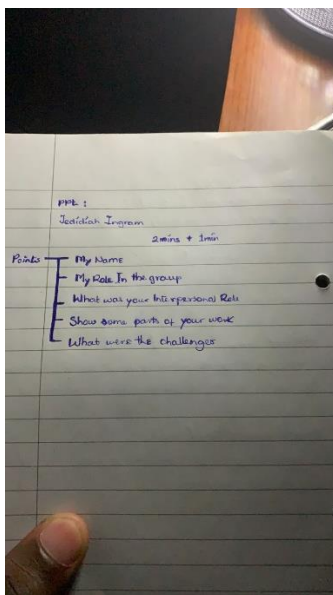 PPL :
Jedidiah Ingram
2mins + 1min
Points
My Name
My Role In the group
What was your Interpersonal Role
Show some parts of your work
What were the challenges